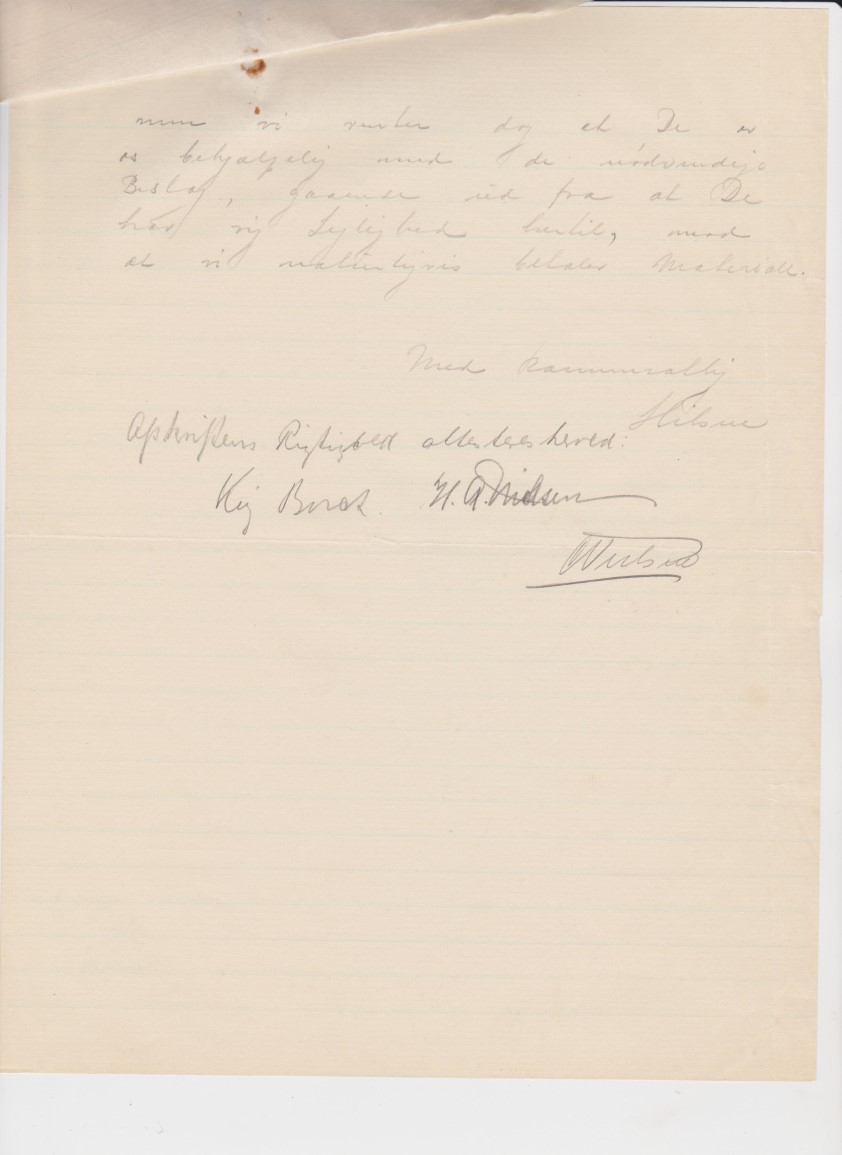 men vi venter dog at De er
os behjælpelig med de nödvendige
Beslag, gaaende ud fra at De
har rig Lejlighed hertil, mod
at vi naturligvis betaler Materiale.
Med kammeratlig
Hilsen
Afskriftens Rigtighed attesteres herved:
Kaj H. A. Nielsen